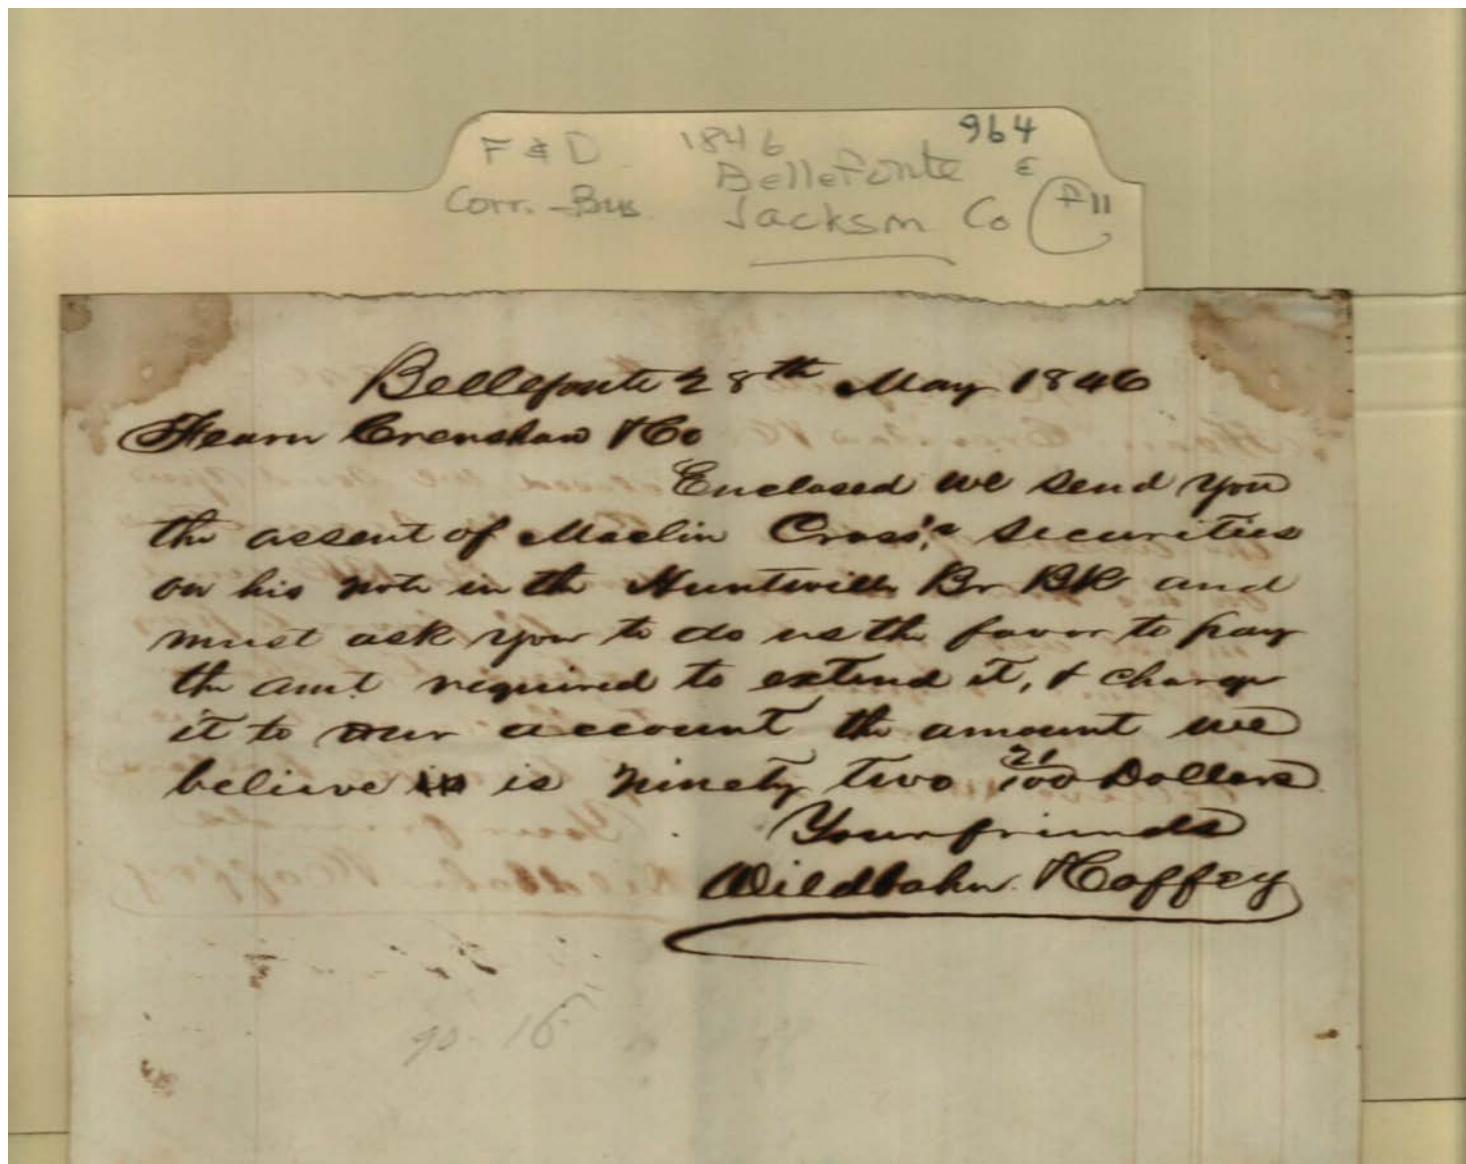 F & D 1846 964
Bellefonte E
Corr. - Bus. Jackson Co F11
Bellefonte 28th May 1846
Fearn Crenshaw & Co
Enclosed we send you
the assent of Maclin Cross's securities
on his note in the Huntsville Br Bk and
must ask you to do us the favor to pay
the amt required to extend it, & charge
it to our account the amount we
believe is is ninety two 21/100 Dollars
Your friends
Wildbahn & Coffey